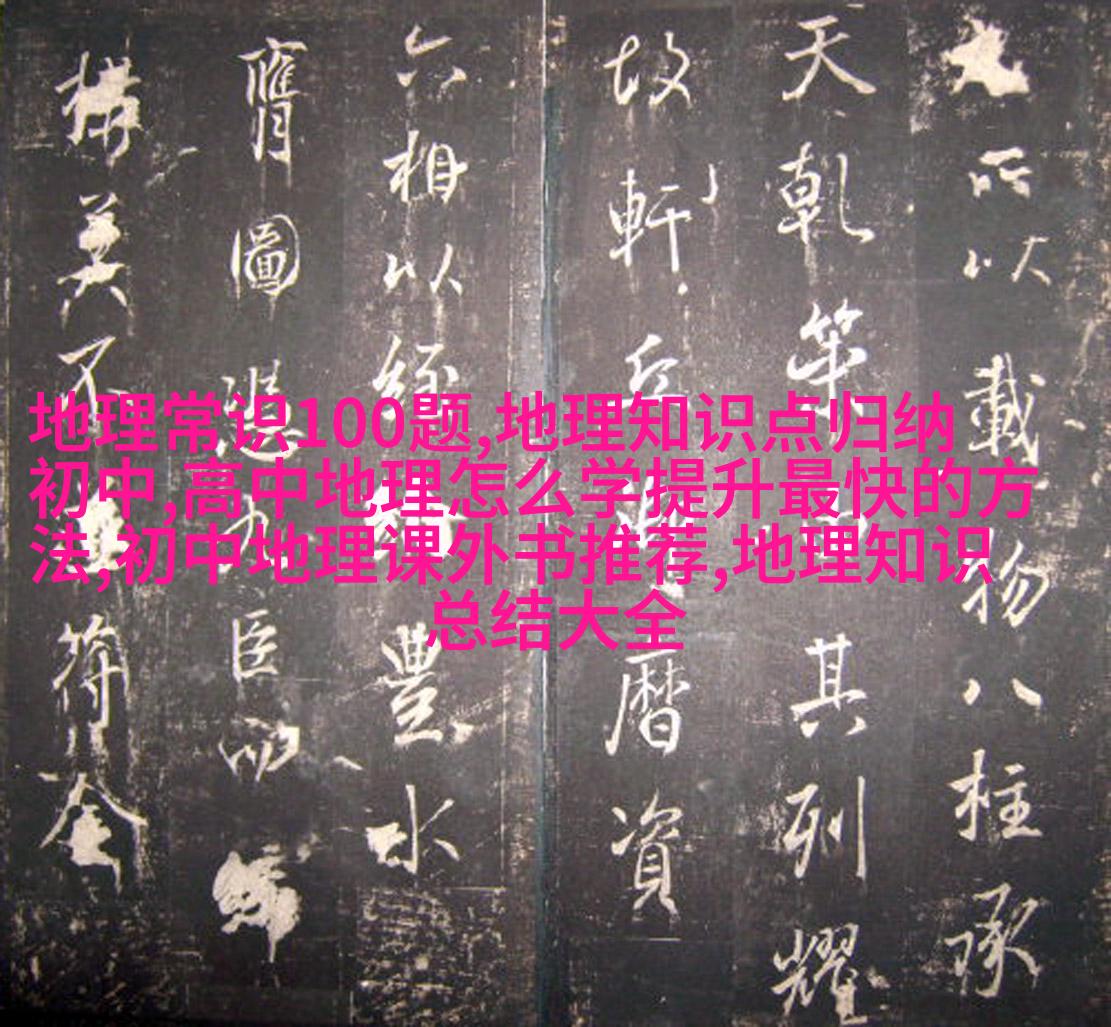 地理常识100题,地理知识点归纳
初中,高中地理怎么学提升最快的方
法,初中地理课外书推荐,地理知识
总结大全
所以載物八柱承
天乾其列耀
故軒丘曆資
六相以經豐水
膺圖臣
構莫不符